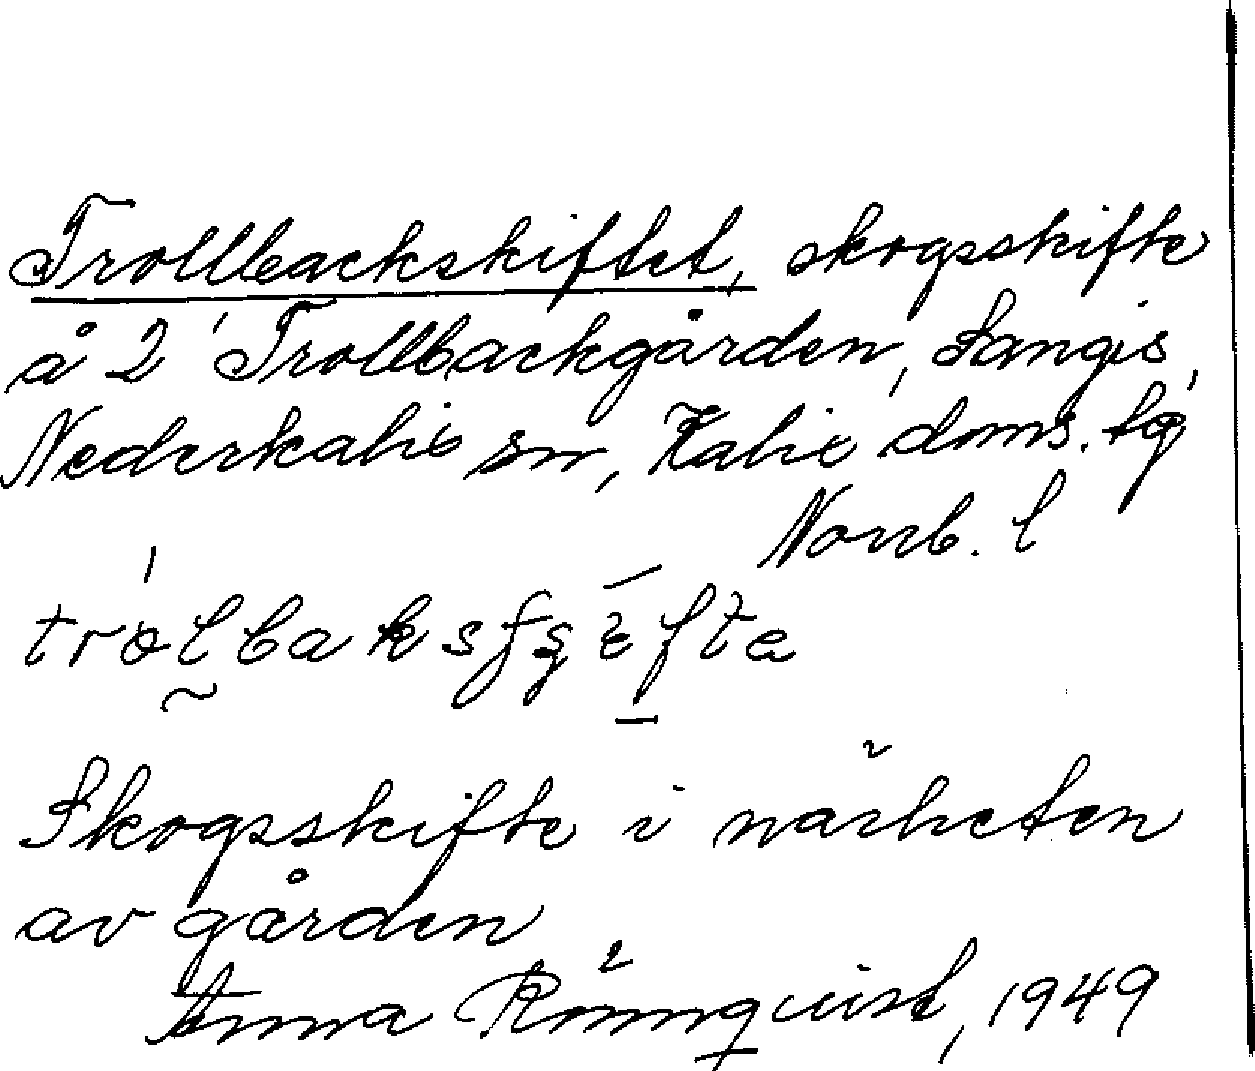 Trollbackskiftet, skogsskifte
å 2' Trollbackgården, Sangis,
Nederkalix sn, Kalix doms. tg
Norrb. l
Skogsskifte i närheten
av gården
Anna Rönnqvist, 1949